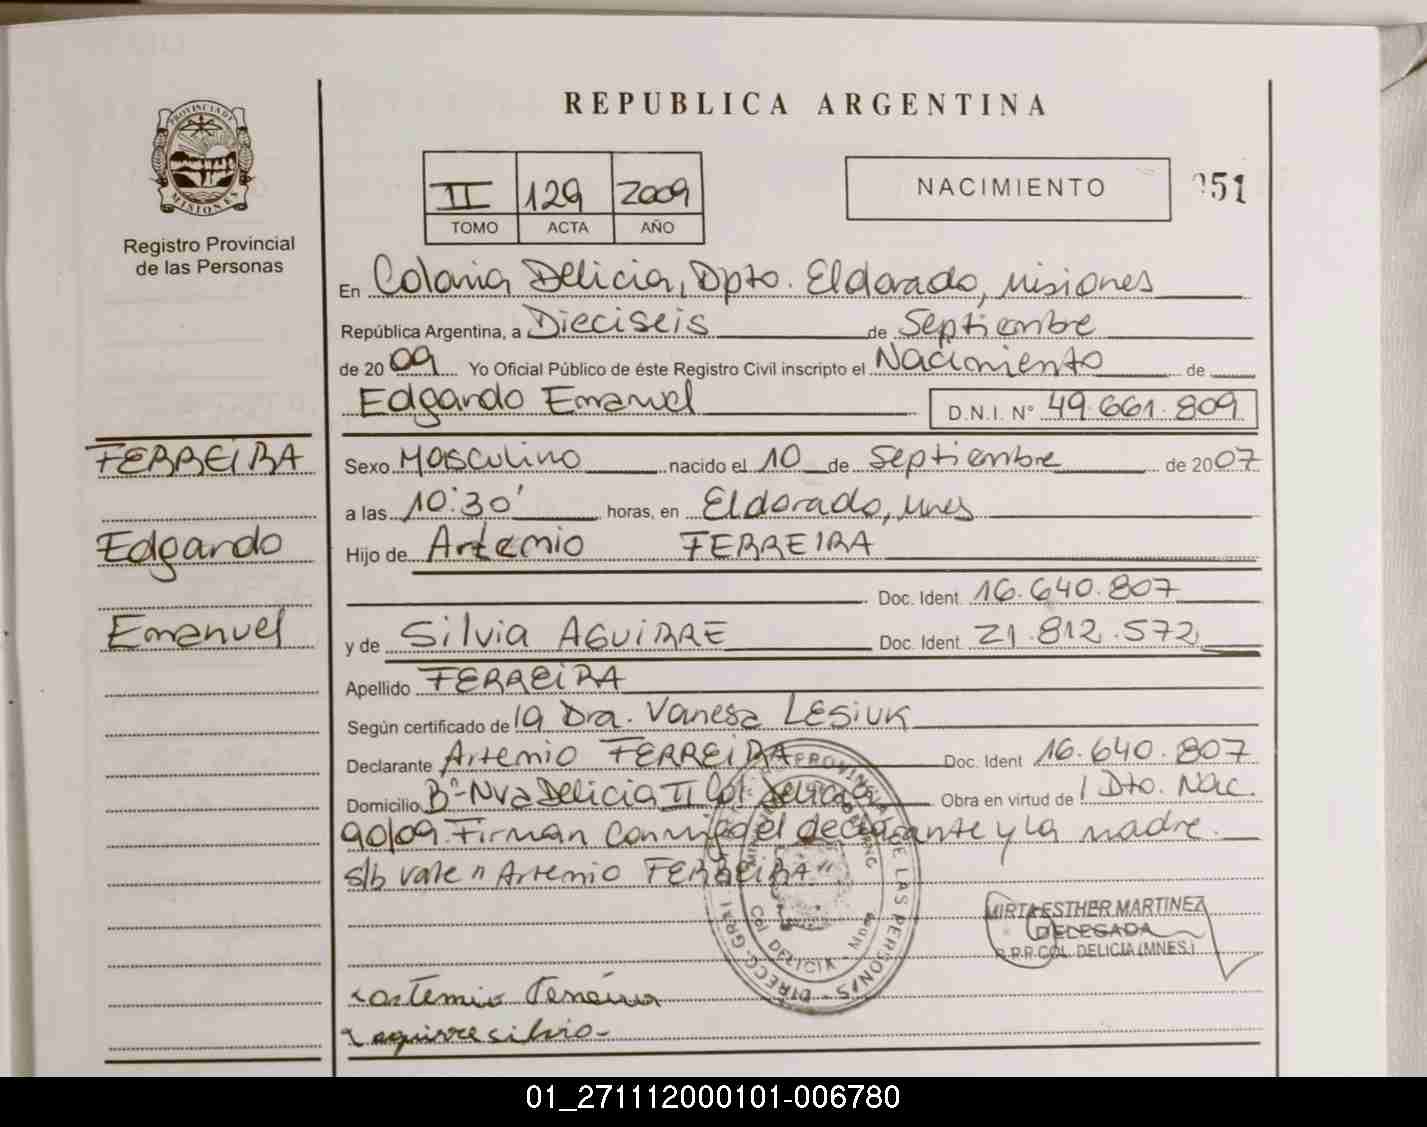 REPUBLICA ARGENTINA
PROVINCIA DE MISIONES
Registro Provincial
de las Personas
II 129 2009
TOMO ACTA AÑO
NACIMIENTO
251
En Colonia Delicia, Dpto. Eldorado, Misiones
República Argentina, a Dieciseis de Septiembre
de 2009 Yo Oficial Público de éste Registro Civil inscripto el Nacimiento de
Edgardo Emanuel D.N.I. N° 49.661.809
FERREIRA
Edgardo
Emanuel
Sexo Masculino nacido el 10 de Septiembre de 2007
a las 10:30' horas, en Eldorado, Mnes
Hijo de Artemio FERREIRA
Doc. Ident. 16.640.807
y de Silvia AGUIRRE Doc. Ident. 21.812.572
Apellido FERREIRA
Según certificado de la Dra. Vanesa LESIUK
Declarante Artemio FERREIRA Doc. Ident 16.640.807
Domicilio B° Nva Delicia II Col Delicia Obra en virtud de 1 Dto. Nac.
90/09. Firman conmigo el declarante y la madre.
s/b vale " Artemio FERREIRA
MIRTA ESTHER MARTINEZ
DELEGADA
R.P.P. COL. DELICIA (MNES.)
DIRECC. GRAL. PROVINCIAL DE LAS PERSONAS
Col DELICIA - Mnes
Artemio Ferreira
aguirre silvia
01_271112000101-006780